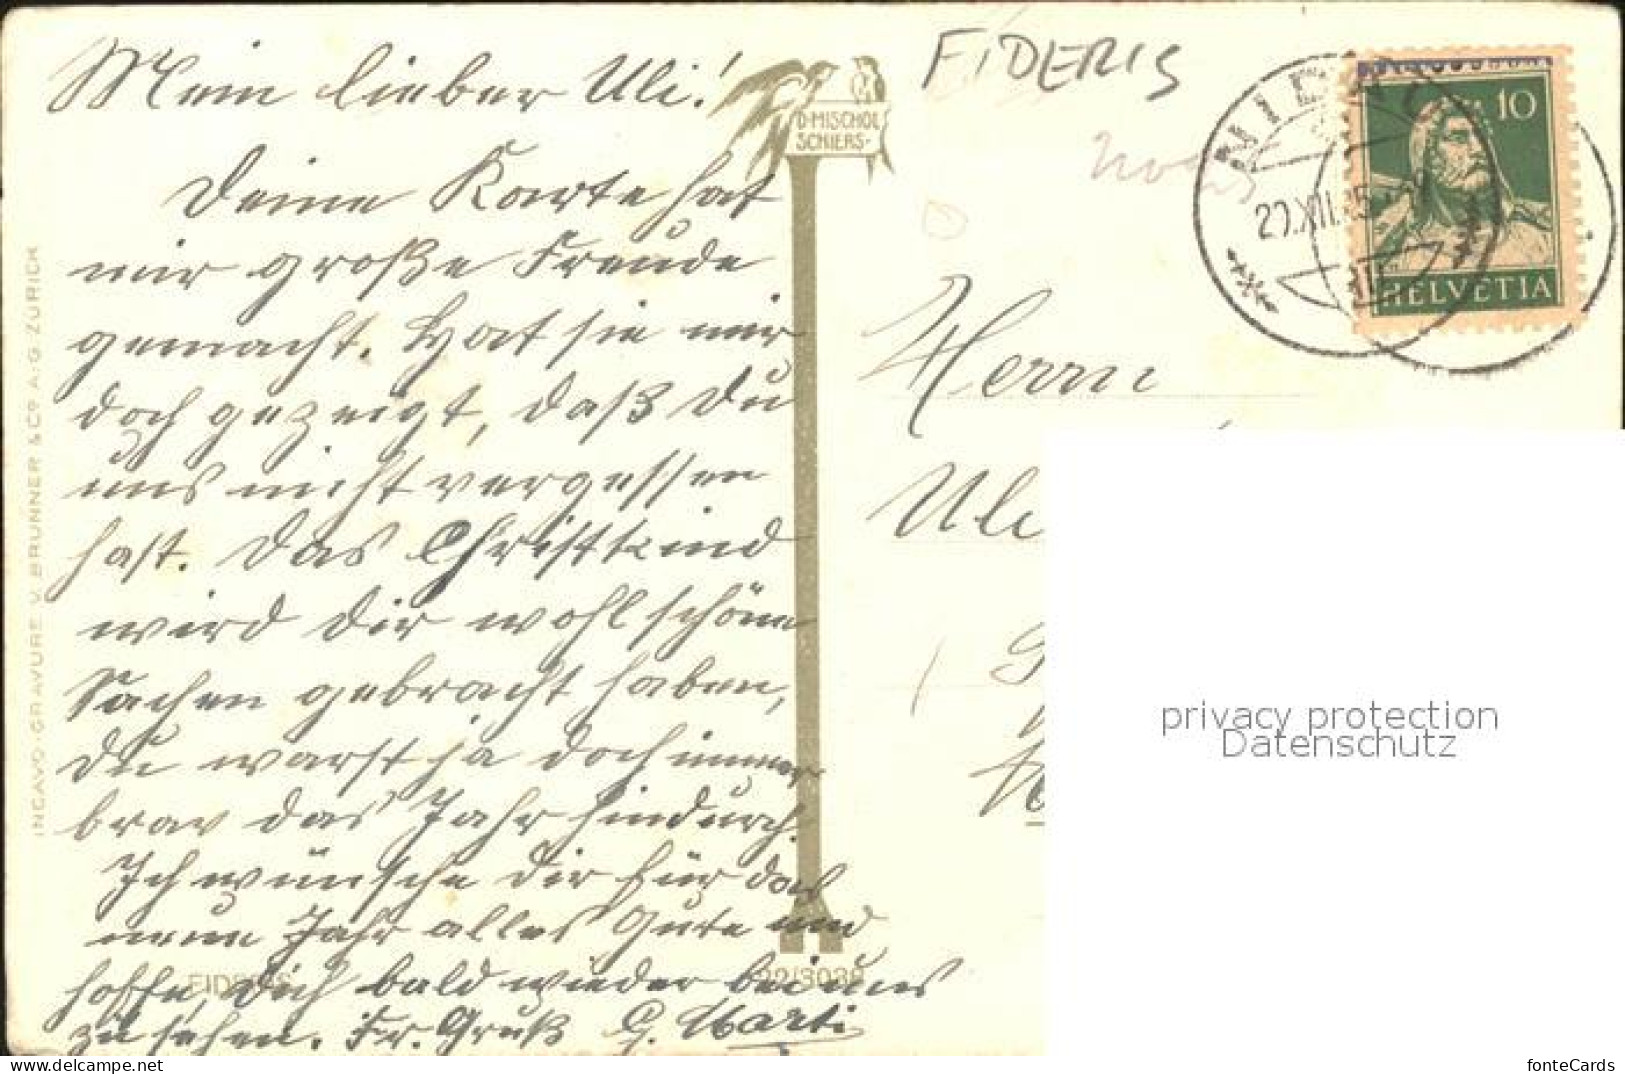 Mein lieber Uli!
Deine Karte hat
mir große Freude
gemacht. Hat sie mir
doch gezeigt, daß Du
uns nicht vergessen
hast. Das Christkind
wird Dir wohl schöne
Sachen gebracht haben,
Du warst ja doch immer
brav das Jahr hindurch.
Ich wünsche Dir für das
neue Jahr alles Gute und
hoffe, Dich bald wieder bei uns
zu sehen. Fr. Gruß G. Marti
INGAVO-GRAVURE V. BRUNNER & Co A.-G. ZÜRICH
D. MISCHOL
SCHIERS
FIDERIS
22/3039
FIDERIS
10
HELVETIA
Herrn
Uli
privacy protection
Datenschutz
fonteCards